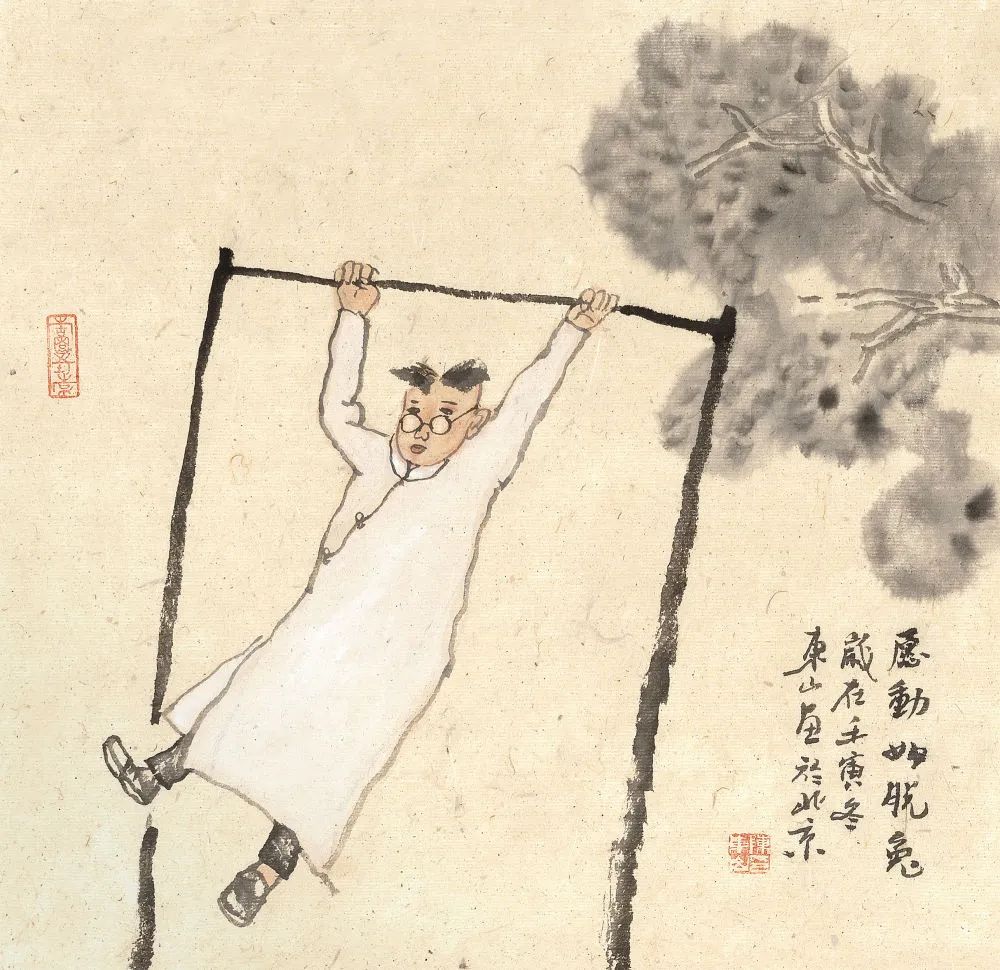 愿動如脱兔
歲在壬寅冬
東山画於北京